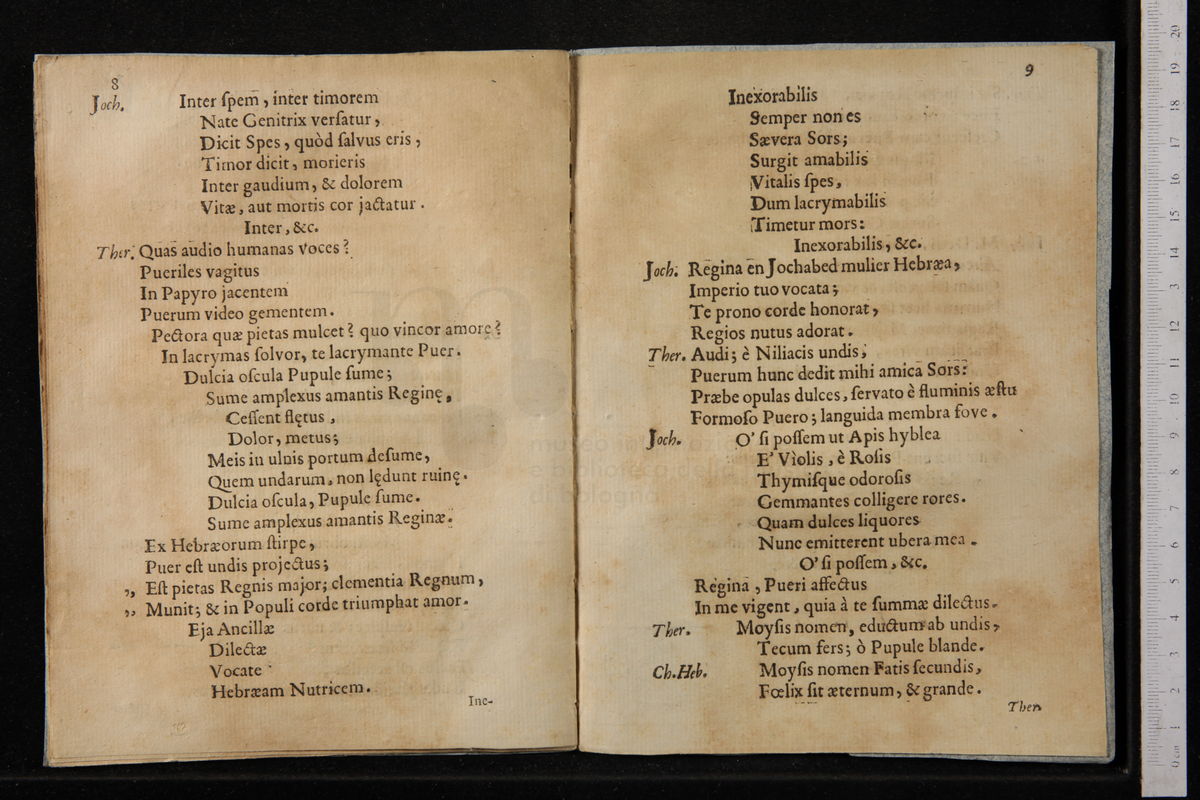 8
Joch. Inter ſpem̄, inter timorem
Nate Genitrix verſatur,
Dicit Spes, quòd ſalvus eris,
Timor dicit, morieris
Inter gaudium, & dolorem
Vitæ, aut mortis cor jactatur.
Inter, &c.
Ther. Quas audio humanas voces?
Pueriles vagitus
In Papyro jacentem
Puerum video gementem.
Pectora quæ pietas mulcet? quo vincor amore?
In lacrymas ſolvor, te lacrymante Puer.
Dulcia oſcula Pupule ſume;
Sume amplexus amantis Reginę,
Ceſſent flętus,
Dolor, metus;
Meis in ulnis portum deſume,
Quem undarum, non lędunt ruinę.
Dulcia oſcula, Pupule ſume.
Sume amplexus amantis Reginæ.
Ex Hebræorum ſtirpe,
Puer eſt undis projectus;
,, Eſt pietas Regnis major; clementia Regnum,
,, Munit; & in Populi corde triumphat amor.
Eja Ancillæ
Dilectæ
Vocate
Hebræam Nutricem.
Ine-
9
Inexorabilis
Semper non es
Sævera Sors;
Surgit amabilis
Vitalis ſpes,
Dum lacrymabilis
Timetur mors:
Inexorabilis, &c.
Joch. Regina en Jochabed mulier Hebræa,
Imperio tuo vocata;
Te prono corde honorat,
Regios nutus adorat.
Ther. Audi; è Niliacis undis,
Puerum hunc dedit mihi amica Sors:
Præbe opulas dulces, ſervato è fluminis æſtu
Formoſo Puero; languida membra fove.
Joch. O' ſi poſſem ut Apis hyblea
E' Vìolis, è Roſis
Thymiſque odoroſis
Gemmantes colligere rores.
Quam dulces liquores
Nunc emitterent ubera mea.
O' ſi poſſem, &c.
Regina, Pueri affectus
In me vigent, quia à te ſummæ dilectus.
Ther. Moyſis nomen, eductum ab undis,
Tecum fers; ò Pupule blande.
Ch.Heb. Moyſis nomen Fatis ſecundis,
Fœlix ſit æternum, & grande.
Ther.